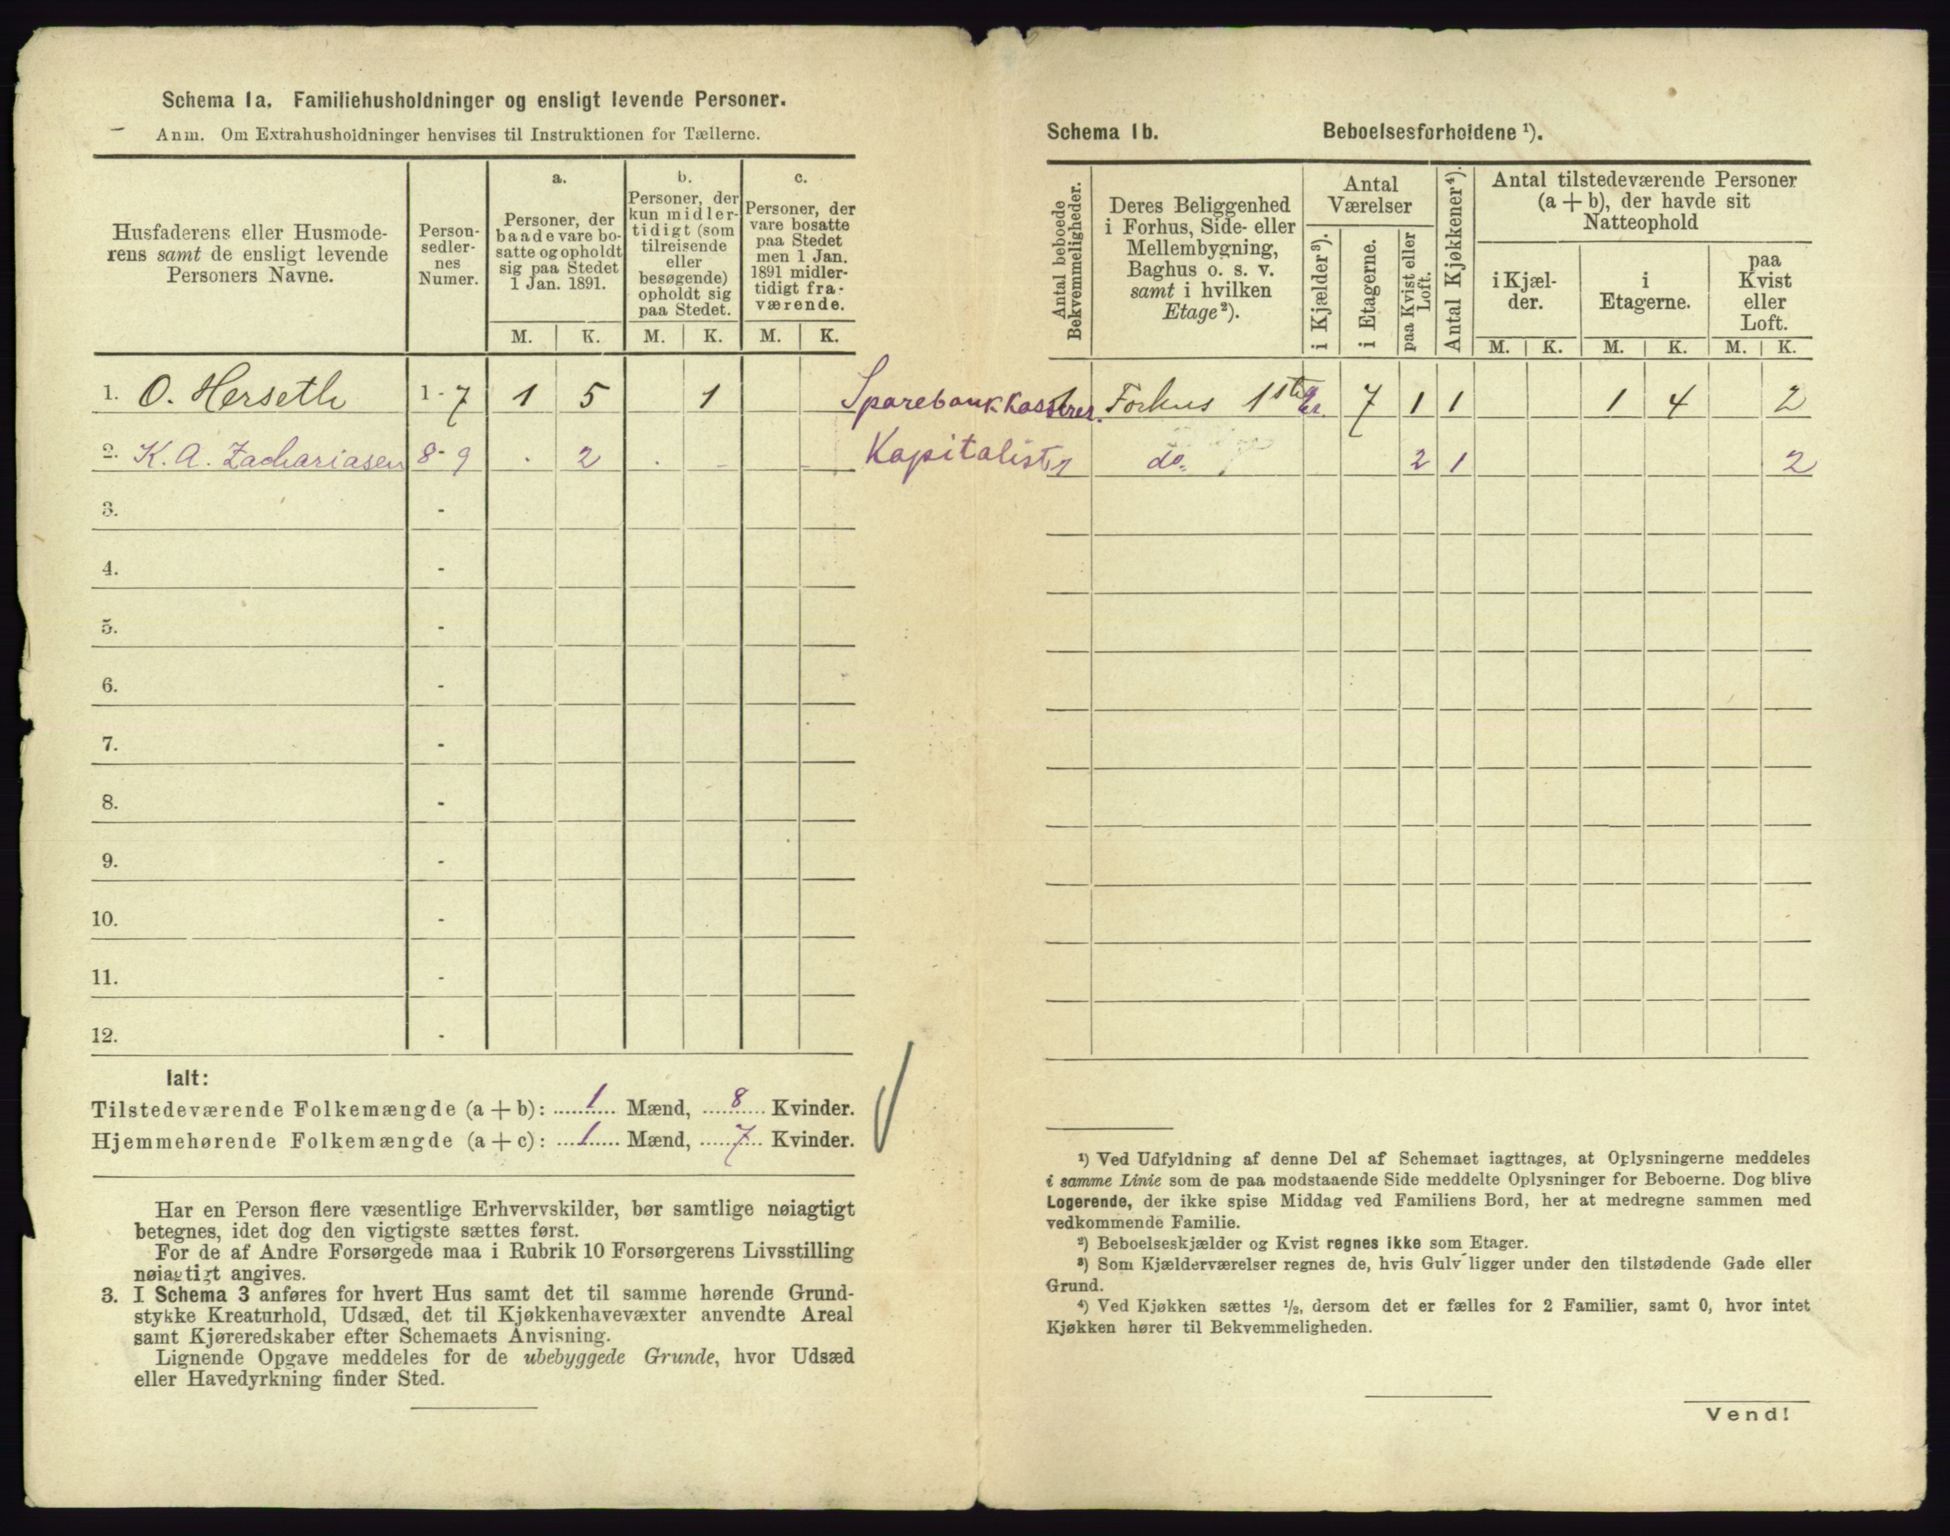 Schema 1a. Familiehusholdninger og ensligt levende Personer.
Anm. Om Extrahusholdninger henvises til Instruktionen for Tællerne.
Husfaderens eller Husmode-
rens samt de ensligt levende
Personers Navne.
Person-
sedler-
nes
Numer.
a.
Personer, der
baade vare bo-
satte og opholdt
sig paa Stedet
1 Jan. 1891.
b.
Personer, der
kun midler-
tidigt (som
tilreisende
eller
besøgende)
opholdt sig
paa Stedet.
c.
Personer, der
vare bosatte
paa Stedet
men 1 Jan.
1891 midler-
tidigt fra-
værende.
M. K. M. K. M. K.
1. O. Herseth 1 - 7 1 5 1
2. K. A. Zachariasen 8 - 9 . 2 . - -
3. -
4. -
5. -
6. -
7. -
8. -
9. -
10. -
11. -
12. -
Ialt:
Tilstedeværende Folkemængde (a + b): 1 Mænd, 8 Kvinder.
Hjemmehørende Folkemængde (a + c): 1 Mænd, 7 Kvinder.
Har en Person flere væsentlige Erhvervskilder, bør samtlige nøiagtigt
betegnes, idet dog den vigtigste sættes først.
For de af Andre Forsørgede maa i Rubrik 10 Forsørgerens Livsstilling
nøiagtigt angives.
3. I Schema 3 anføres for hvert Hus samt det til samme hørende Grund-
stykke Kreaturhold, Udsæd, det til Kjøkkenhavevæxter anvendte Areal
samt Kjøreredskaber efter Schemaets Anvisning.
Lignende Opgave meddeles for de ubebyggede Grunde, hvor Udsæd
eller Havedyrkning finder Sted.
Schema 1b. Beboelsesforholdene ¹).
Antal beboede
Bekvemmeligheder.
Deres Beliggenhed
i Forhus, Side- eller
Mellembygning,
Baghus o. s. v.
samt i hvilken
Etage²).
Antal
Værelser
i Kjælder³).
i Etagerne.
paa Kvist eller
Loft.
Antal Kjøkkener⁴).
Antal tilstedeværende Personer
(a + b), der havde sit
Natteophold
i Kjæl-
der.
i
Etagerne.
paa
Kvist
eller
Loft.
M. K. M. K. M. K.
Sparebankkasserer. Forhus 1ste 7 1 1 1 4 2
Kapitalist 1 do. 2 1 2
¹) Ved Udfyldning af denne Del af Schemaet iagttages, at Oplysningerne meddeles
i samme Linie som de paa modstaaende Side meddelte Oplysninger for Beboerne. Dog blive
Logerende, der ikke spise Middag ved Familiens Bord, her at medregne sammen med
vedkommende Familie.
²) Beboelseskjælder og Kvist regnes ikke som Etager.
³) Som Kjælderværelser regnes de, hvis Gulv ligger under den tilstødende Gade eller
Grund.
⁴) Ved Kjøkken sættes ½, dersom det er fælles for 2 Familier, samt 0, hvor intet
Kjøkken hører til Bekvemmeligheden.
Vend!